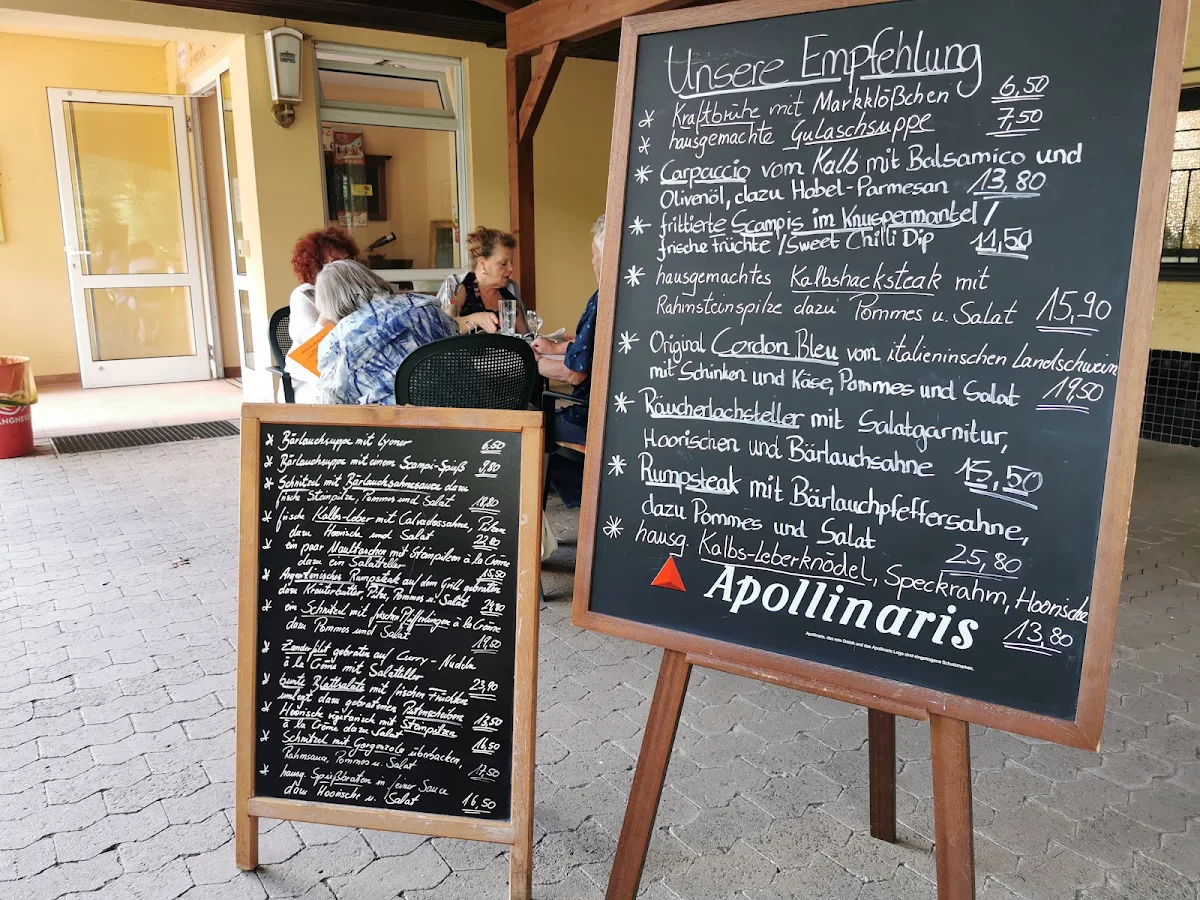 Unsere Empfehlung
* Kraftbrühe mit Markklößchen 6,50
* hausgemachte Gulaschsuppe 7,50
* Carpaccio vom Kalb mit Balsamico und
Olivenöl, dazu Hobel-Parmesan 13,80
* frittierte Scampis im Knuspermantel /
frische Früchte / Sweet Chilli Dip 11,50
* hausgemachtes Kalbshacksteak mit
Rahmsteinpilze dazu Pommes u. Salat 15,90
* Original Cordon Bleu vom italieninschen Landschwein
mit Schinken und Käse, Pommes und Salat 19,50
* Räucherlachsteller mit Salatgarnitur,
Hoorischen und Bärlauchsahne 15,50
* Rumpsteak mit Bärlauchpfeffersahne,
dazu Pommes und Salat 25,80
* hausg. Kalbs-Leberknödel, Speckrahm, Hoorische
13,80
Apollinaris
* Bärlauchsuppe mit Lyoner 6,50
* Bärlauchsuppe mit einem Scampi-Spieß 9,80
* Schnitzel mit Bärlauchsahnesauce dazu
frische Steinpilze, Pommes und Salat 18,80
* frische Kalbs-Leber mit Calvadossahne, Pilzen
dazu Hoorische und Salat 22,80
* ein paar Maultaschen mit Steinpilzen à la Crème
dazu ein Salatteller 15,50
* Argentinisches Rumpsteak auf dem Grill gebraten
dazu Kräuterbutter, Pilze, Pommes u. Salat 24,80
* ein Schnitzel mit frischen Pfifferlingen à la Crème
dazu Pommes und Salat 19,50
* Zanderfilet gebraten auf Curry-Nudeln
à la Crème mit Salatteller 23,90
* bunte Blattsalate mit frischen Früchten
umlegt dazu gebratenen Putenscheiben 13,50
* Hoorische vegetarisch mit Steinpilze
à la Crème dazu Salat 16,50
* Schnitzel mit Gorgonzola überbacken,
Rahmsauce, Pommes u. Salat 17,50
* hausg. Spießbraten in feiner Sauce
dazu Hoorische u. Salat 16,50